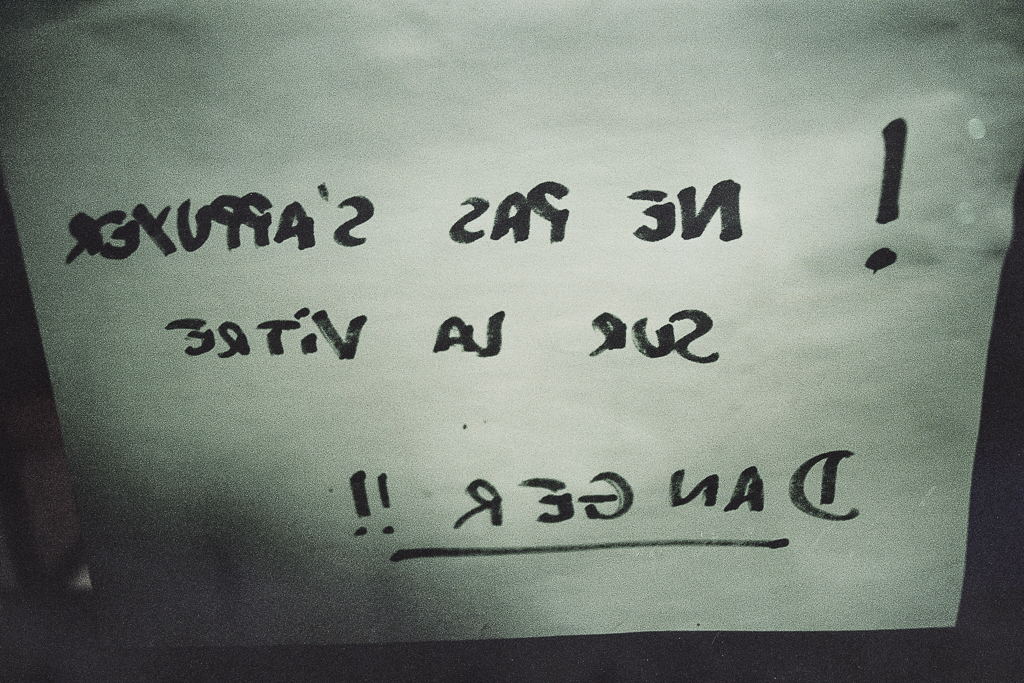 ! NE PAS S'APPUYER
SUR LA VITRE
DANGER !!